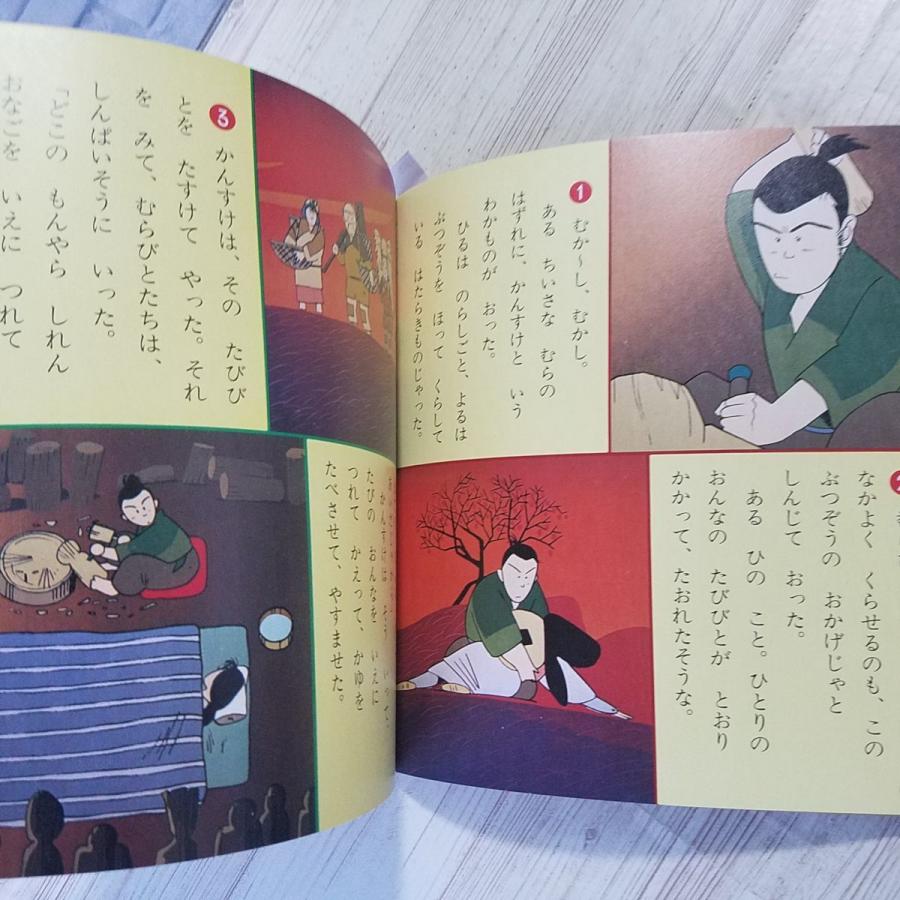 1
むか〜し、むかし。
ある ちいさな むらの
はずれに、かんすけと いう
わかものが おった。
ひるは のらしごと、よるは
ぶつぞうを ほって くらして
いる はたらきものじゃった。
なかよく くらせるのも、この
ぶつぞうの おかげじゃと
しんじて おった。
ある ひの こと。ひとりの
おんなの たびびとが とおり
かかって、たおれたそうな。
3
かんすけは、その たびび
とを たすけて やった。それ
を みて、むらびとたちは、
しんぱいそうに いった。
「どこの もんやら しれん
おなごを いえに つれて
かんすけは そう いって、
たびの おんなを いえに
つれて かえって、かゆを
たべさせて、やすませた。